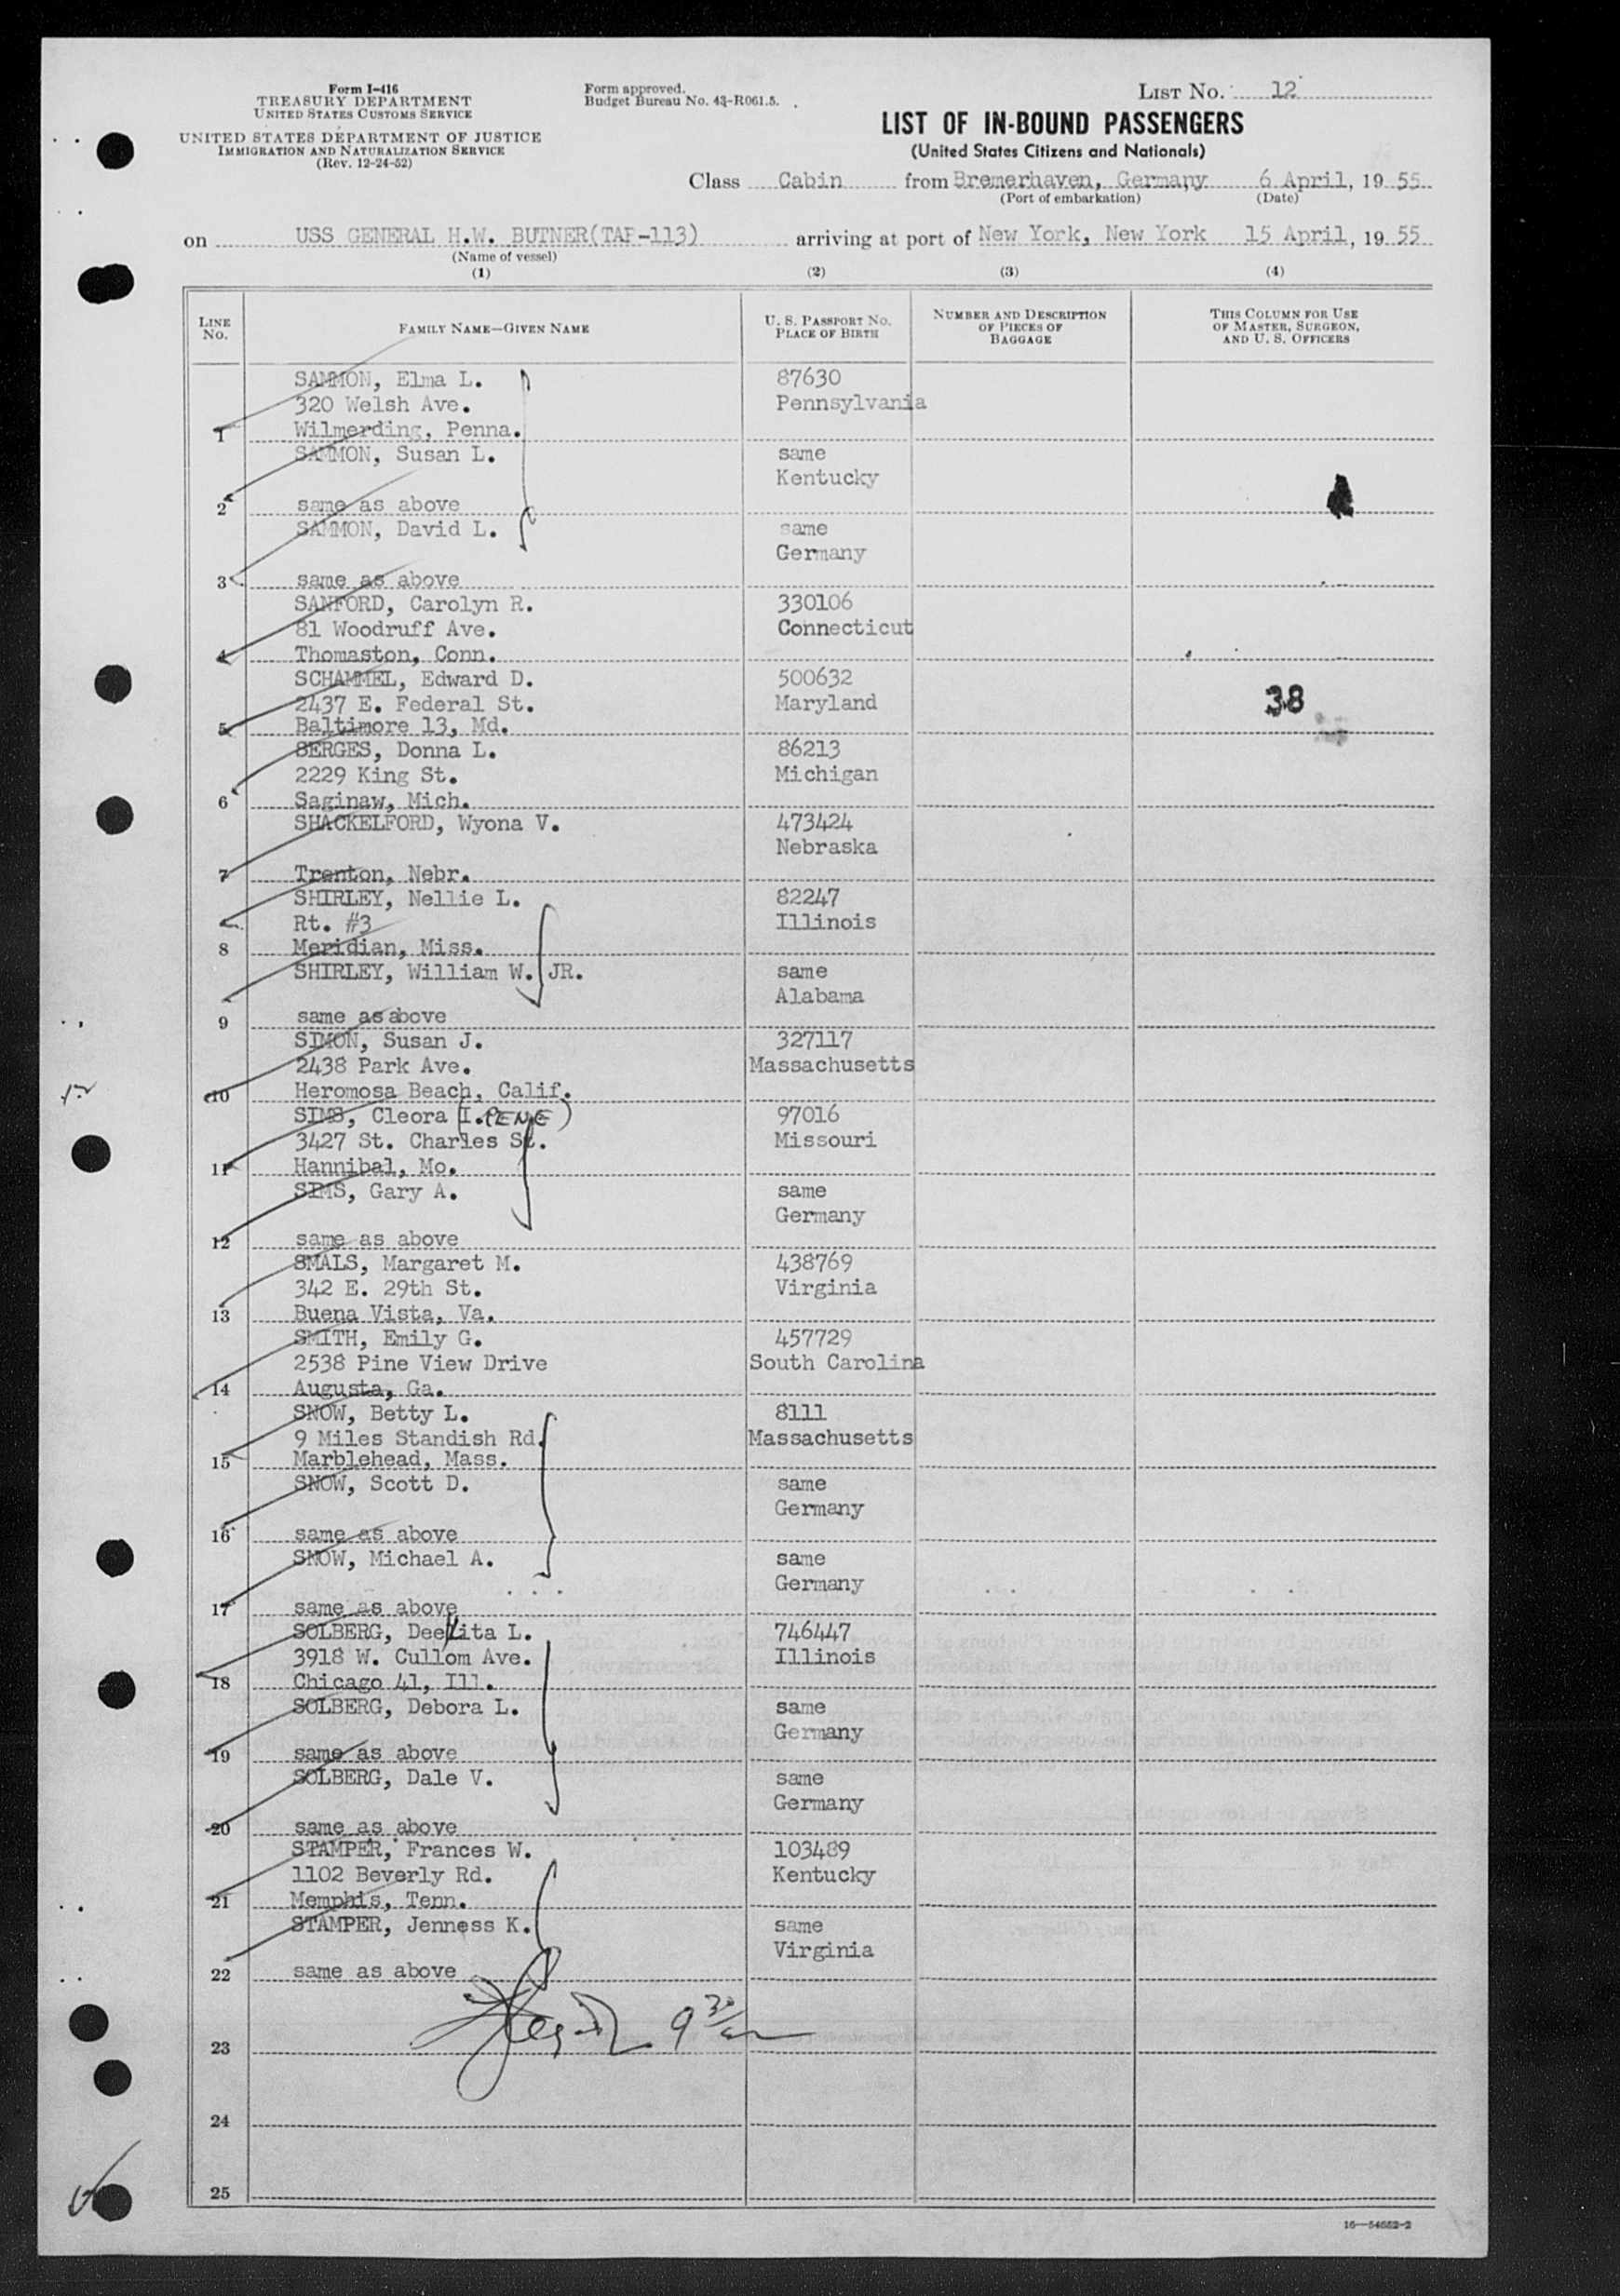 Form I-416
TREASURY DEPARTMENT
UNITED STATES CUSTOMS SERVICE
UNITED STATES DEPARTMENT OF JUSTICE
IMMIGRATION AND NATURALIZATION SERVICE
(Rev. 12-24-52)
Form approved.
Budget Bureau No. 43-R061.5.
LIST No. 12
LIST OF IN-BOUND PASSENGERS
(United States Citizens and Nationals)
Class Cabin from Bremerhaven, Germany 6 April, 19 55
(Port of embarkation) (Date)
on USS GENERAL H.W. BUTNER(TAP-113) arriving at port of New York, New York 15 April, 19 55
(Name of vessel)
(1) (2) (3) (4)
LINE No. FAMILY NAME—GIVEN NAME U. S. PASSPORT No. PLACE OF BIRTH NUMBER AND DESCRIPTION OF PIECES OF BAGGAGE THIS COLUMN FOR USE OF MASTER, SURGEON, AND U. S. OFFICERS
SAMMON, Elma L. 87630
320 Welsh Ave. Pennsylvania
1 Wilmerding, Penna.
SAMMON, Susan L. same
Kentucky
2 same as above
SAMMON, David L. same
Germany
3 same as above
SANFORD, Carolyn R. 330106
81 Woodruff Ave. Connecticut
4 Thomaston, Conn.
SCHAMMEL, Edward D. 500632
2437 E. Federal St. Maryland 38
5 Baltimore 13, Md.
SERGES, Donna L. 86213
2229 King St. Michigan
6 Saginaw, Mich.
SHACKELFORD, Wyona V. 473424
Nebraska
7 Trenton, Nebr.
SHIRLEY, Nellie L. 82247
Rt. #3 Illinois
8 Meridian, Miss.
SHIRLEY, William W. JR. same
Alabama
9 same as above
SIMON, Susan J. 327117
2438 Park Ave. Massachusetts
10 Heromosa Beach, Calif.
SIMS, Cleora (I. RENE) 97016
3427 St. Charles St. Missouri
11 Hannibal, Mo.
SIMS, Gary A. same
Germany
12 same as above
SMALS, Margaret M. 438769
342 E. 29th St. Virginia
13 Buena Vista, Va.
SMITH, Emily G. 457729
2538 Pine View Drive South Carolina
14 Augusta, Ga.
SNOW, Betty L. 8111
9 Miles Standish Rd. Massachusetts
15 Marblehead, Mass.
SNOW, Scott D. same
Germany
16 same as above
SNOW, Michael A. same
Germany
17 same as above
SOLBERG, L. 746447
3918 W. Cullom Ave. Illinois
18 Chicago 41, Ill.
SOLBERG, Debora L. same
Germany
19 same as above
SOLBERG, Dale V. same
Germany
20 same as above
STAMPER, Frances W. 103489
1102 Beverly Rd. Kentucky
21 Memphis, Tenn.
STAMPER, Jenness K. same
Virginia
22 same as above
23
24
25
16—54652-2